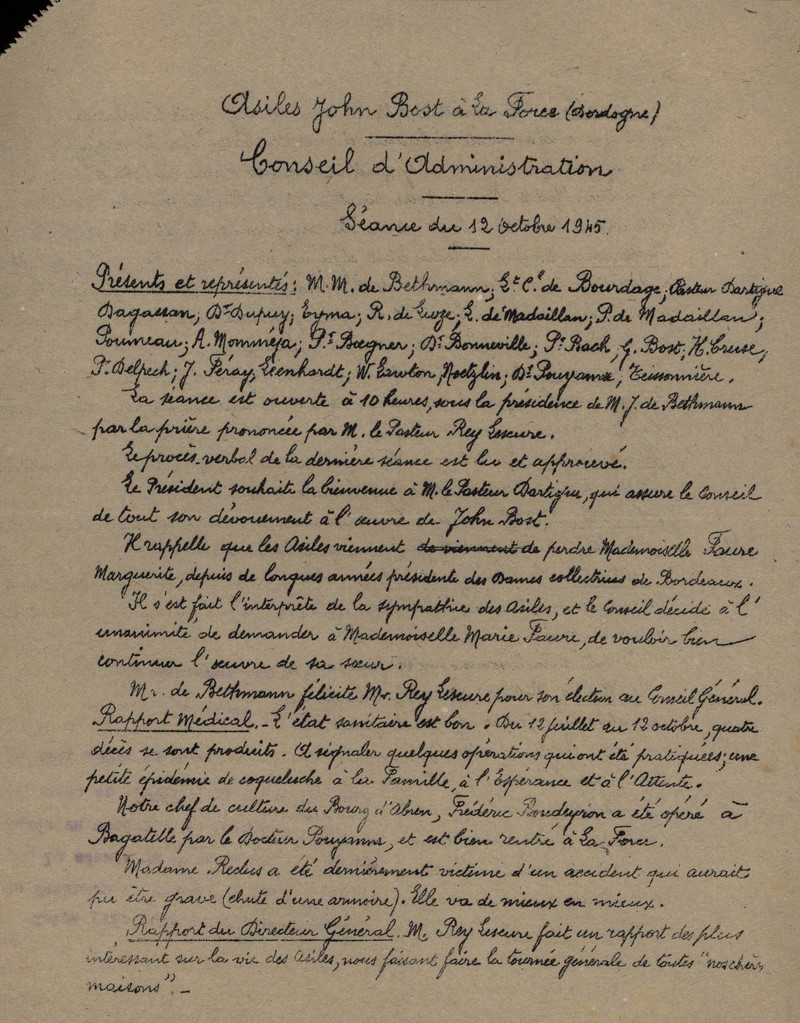 Asiles John Bost à La Force (Dordogne)
Conseil d'Administration
Séance du 12 Octobre 1945.
Présents et représentés: M.M. de Bethmann; Lt. Cel de Bourdage; Pasteur Dartigue
Dagassan; Dr Dupuy; Eyma; R. de Luze; L. de Madaillan; P. de Madaillan;
Pouneau; A. Momméja; Pr Bœgner; Dr Bonneville; Pr Bach, G. Bost; H. Cruse;
Pr Delpech; J. Féray; Leenhardt; W. Lawton, Nœtzlin; Dr Pouyanne; Teissonnière.
La séance est ouverte à 10 heures, sous la présidence de M. J. de Bethmann
par la prière prononcée par M. le Pasteur Rey Lescure.
Le procès-verbal de la dernière séance est lu et approuvé.
Le Président souhaite la bienvenue à M. le Pasteur Dartigue, qui assure le Conseil
de tout son dévouement à l'œuvre de John Bost.
Il rappelle que les Asiles viennent de viennent de perdre Mademoiselle Faure
Marguerite, depuis de longues années présidente des Dames collectrices de Bordeaux.
Il s'est fait l'interprète de la sympathie des Asiles, et le Conseil décide à l'
unanimité de demander à Mademoiselle Marie Faure, de vouloir bien
continuer l'œuvre de sa sœur.
Mr. de Bethmann félicite Mr. Rey Lescure pour son élection au Conseil Général.
Rapport Médical. - L'état sanitaire est bon. Du 12 juillet au 12 octobre, quatre
décès se sont produits. A signaler quelques opérations qui ont été pratiquées; une
petite épidémie de coqueluche à la Famille, à l'Espérance et à l'Attente.
Notre chef de culture du Bourg d'Abren, Frédéric a été opéré à
Bagatelle par le Docteur Pouyanne, et est bien rentré à La Force.
Madame Reclus a été dernièrement victime d'un accident qui aurait
pu être grave (chute d'une armoire). Elle va de mieux en mieux.
Rapport du Directeur Général. M. Rey Lescure fait un rapport des plus
intéressant sur la vie des Asiles, nous faisant faire la tournée générale de toutes "nos chères
maisons". -